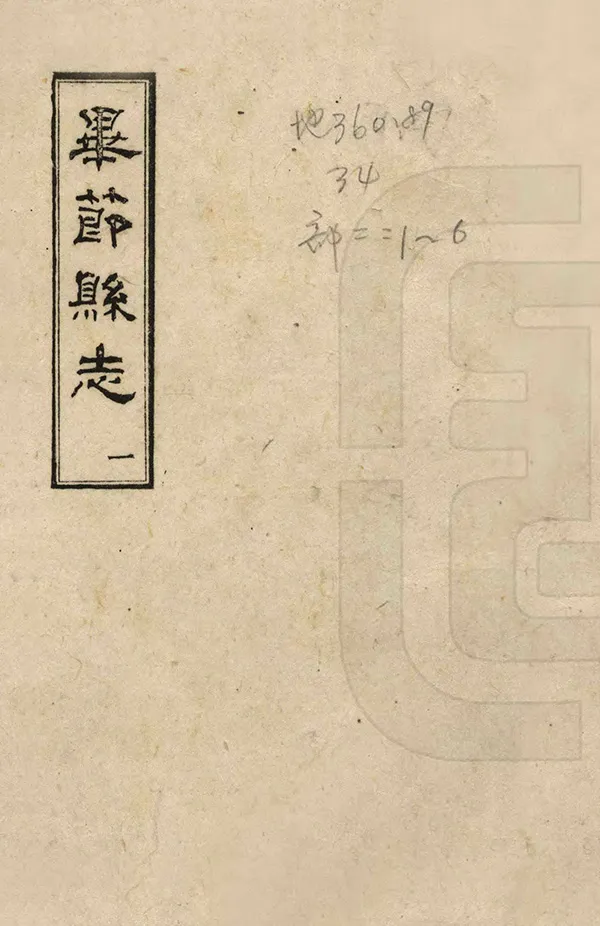 畢節縣志
一
地360.89
34
部二:1~6